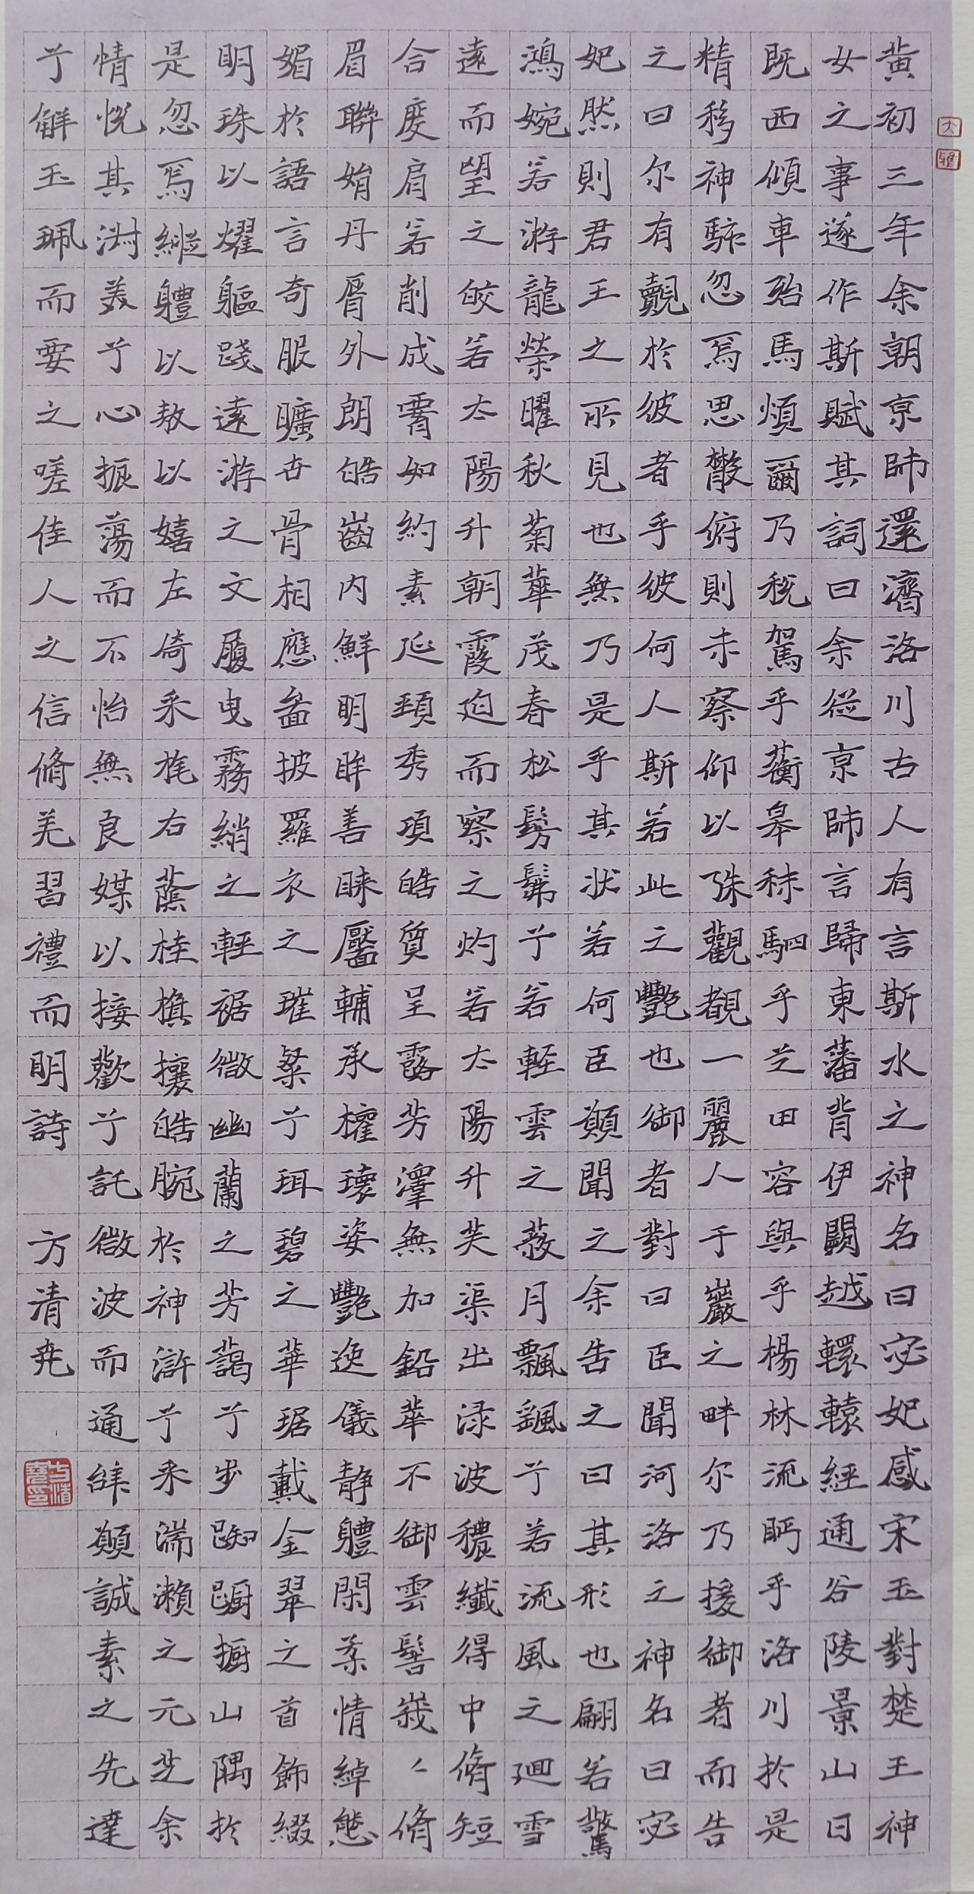 黃初三年余朝京師還濟洛川古人有言斯水之神名曰宓妃感宋玉對楚王神
女之事遂作斯賦其詞曰余從京師言歸東藩背伊闕越轘轅經通谷陵景山日
既西傾車殆馬煩爾乃稅駕乎蘅皋秣駟乎芝田容與乎楊林流眄乎洛川於是
精移神駭忽焉思散俯則未察仰以殊觀覩一麗人于巖之畔尔乃援御者而告
之曰尔有覿於彼者乎彼何人斯若此之艷也御者對曰臣聞河洛之神名曰宓
妃然則君王之所見也無乃是乎其狀若何臣願聞之余告之曰其形也翩若驚
鴻婉若游龍榮曜秋菊華茂春松髣髴兮若輕雲之蔽月飄颻兮若流風之迴雪
遠而望之皎若太陽升朝霞迫而察之灼若太陽升芙渠出淥波穠纖得中脩短
合度肩若削成腰如約素延頸秀項皓質呈露芳澤無加鉛華不御雲髻峩〻脩
眉聯娟丹脣外朗皓齒內鮮明眸善睞靨輔承權瓌姿艷逸儀靜軆閑柔情綽態
媚於語言奇服曠世骨相應圖披羅衣之璀粲兮珥碧之華琚戴金翠之首飾綴
明珠以燿軀踐遠游之文履曳霧綃之輕裾微幽蘭之芳藹兮步踟躕山隅於
是忽焉縱軆以敖以嬉左倚采旄右蔭桂旗攘皓腕於神滸兮采湍瀨之元芝余
情悅其淑美兮心振蕩而不怡無良媒以接歡兮託微波而通辭願誠素之先達
兮解玉珮而要之嗟佳人之信脩羌習禮而明詩
方清堯